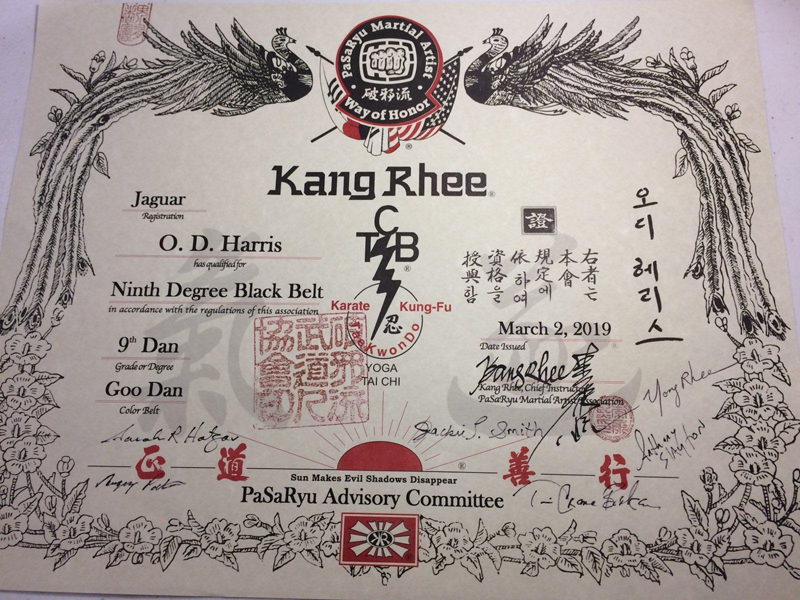 PaSaRyu Martial Artist
破邪流
Way of Honor
®
Kang Rhee®
Jaguar
Registration
O. D. Harris
has qualified for
Ninth Degree Black Belt
in accordance with the regulations of this association
9th Dan
Grade or Degree
Goo Dan
Color Belt
C
TCB
®
Karate
Kung-Fu
忍
TaeKwonDo
YOGA
TAI CHI
證
右者는
本會
規定에
依하여
資格을
授與함
오디 헤리스
March 2, 2019
Date Issued
Kang Rhee
Kang Rhee, Chief Instructor
PaSaRyu Martial Artist Association
破邪流
武道人
協會
Yong Rhee
Sarah R Hafgar
Jackie L. Smith
正道
善行
®
Sun Makes Evil Shadows Disappear
PaSaRyu Advisory Committee